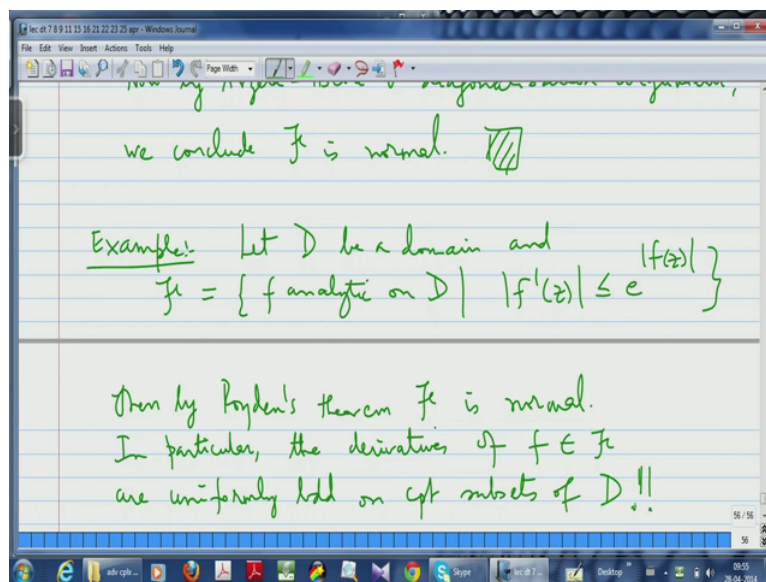 lec dt 7 8 9 11 15 16 21 22 23 25 apr - Windows Journal
File Edit View Insert Actions Tools Help
Page Width
we conclude F is normal.
Example:- Let D be a domain and
F = { f analytic on D | |f'(z)| ≤ e^|f(z)| }
Then by Royden's theorem F is normal.
In particular, the derivatives of f ∈ F
are uniformly bdd on cpt subsets of D !!
56 / 56
56
adv cplx...
Skype
lec dt 7 ...
Desktop
09:55
28-04-2014